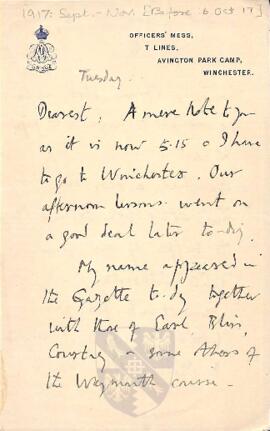 1917: Sept. - Nov. [Before 6 Oct 17]
OFFICERS' MESS,
T LINES,
AVINGTON PARK CAMP,
WINCHESTER.
Tuesday.
Dearest, A mere note to you
as it is now 5.15 & I have
to go to Winchester. Our
afternoon lessons went on
a good deal later to-day.
My name appeared in
the Gazette to-day together
with those of Earl, Bliss,
Courtney & some others of
the Weymouth course -